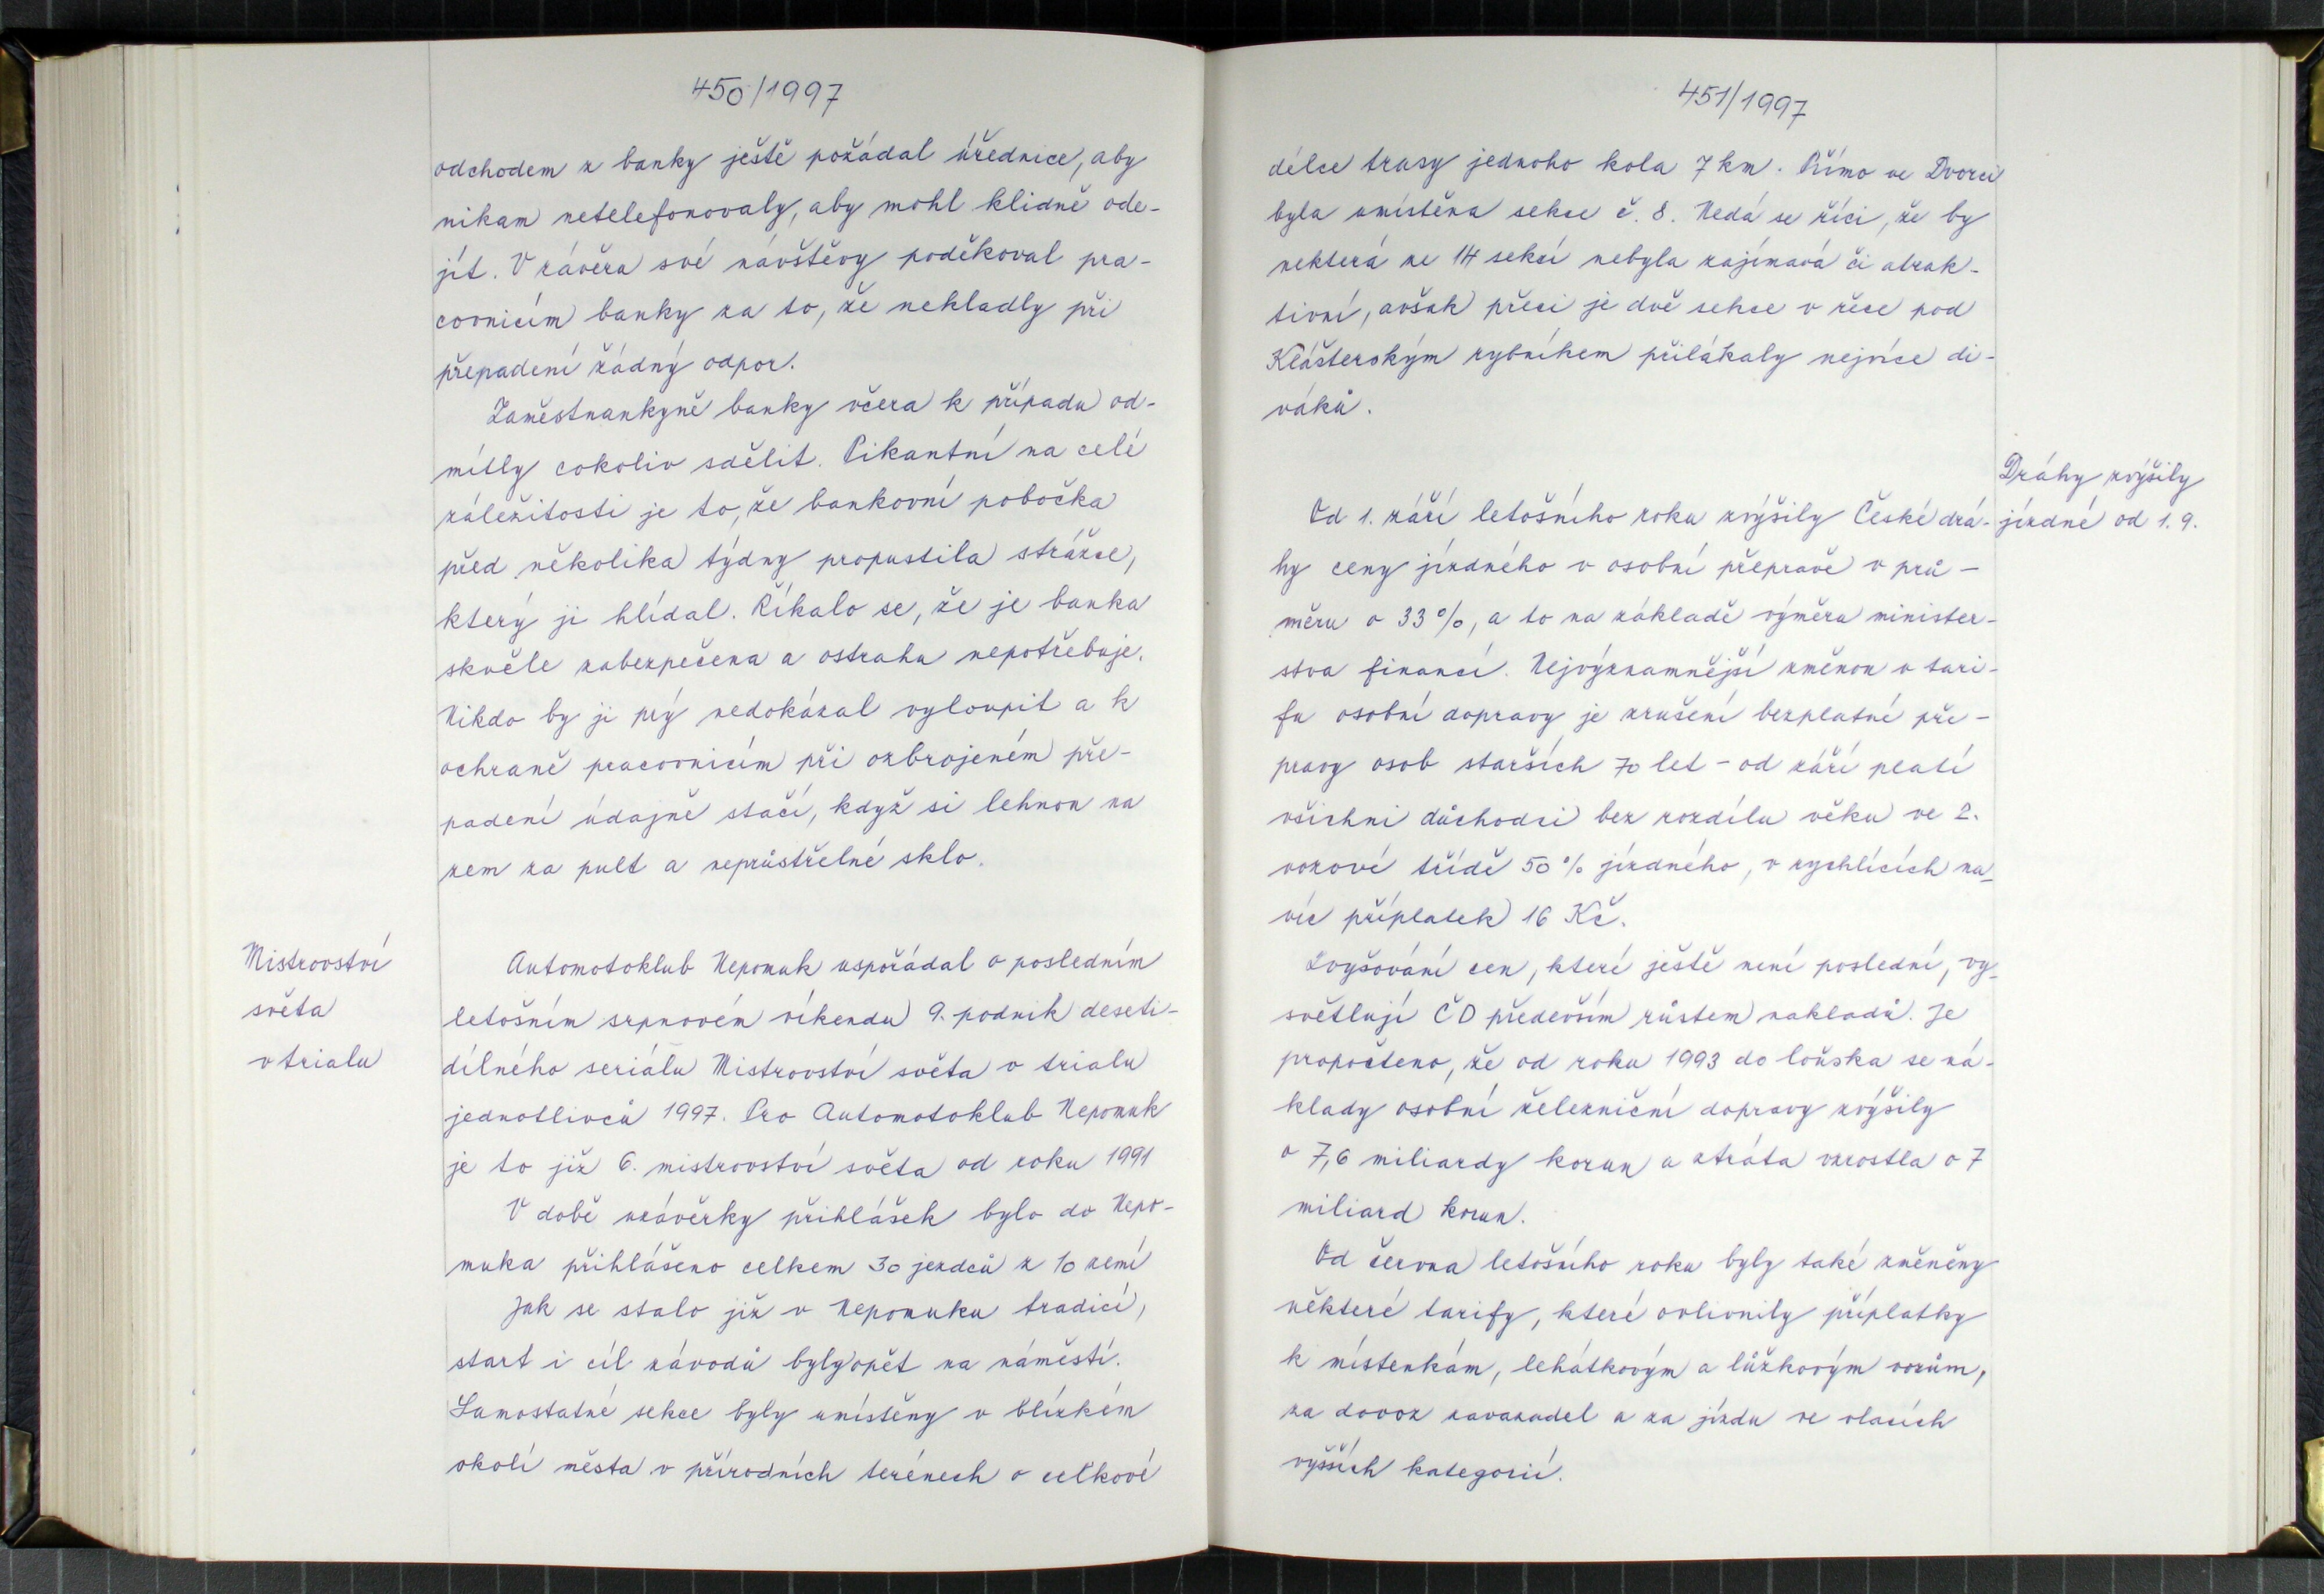 450/1997
odchodem z banky ještě požádal úřednice, aby
nikam netelefonovaly, aby mohl klidně ode-
jít. V závěru své návštěvy poděkoval pra-
covnicím banky za to, že nekladly při
přepadení žádný odpor.
Zaměstnankyně banky včera k případu od-
mítly cokoliv sdělit. Pikantní na celé
záležitosti je to, že bankovní pobočka
před několika týdny propustila strážce,
který ji hlídal. Říkalo se, že je banka
skvěle zabezpečena a ostrahu nepotřebuje.
Nikdo by ji prý nedokázal vyloupit a k
ochraně pracovnicím při ozbrojeném pře-
padení údajně stačí, když si lehnou na
zem za pult a neprůstřelné sklo.
Mistrovství
světa
v trialu
Automotoklub Nepomuk uspořádal o posledním
letošním srpnovém víkendu 9. podnik deseti-
dílného seriálu Mistrovství světa v trialu
jednotlivců 1997. Pro Automotoklub Nepomuk
je to již 6. mistrovství světa od roku 1991
V době uzávěrky přihlášek bylo do Nepo-
muka přihlášeno celkem 30 jezdců z 10 zemí
Jak se stalo již v Nepomuku tradicí,
start i cíl závodů byly opět na náměstí.
Samostatné sekce byly umístěny v blízkém
okolí města v přírodních terénech o celkové
451/1997
délce trasy jednoho kola 7 km. Přímo ve Dvorci
byla umístěna sekce č. 8. Nedá se říci, že by
nekterá ze 14 sekcí nebyla zajímavá či atrak-
tivní, avšak přeci je dvě sekce v řece pod
Klášterským rybníkem přilákaly nejvíce di-
váků.
Dráhy zvýšily
jízdné od 1. 9.
Od 1. září letošního roku zvýšily České drá-
hy ceny jízdného v osobní přepravě v prů-
měru o 33 %, a to na základě výměru minister-
stva financí. Nejvýznamnější změnou v tari-
fu osobní dopravy je zrušení bezplatné pře-
pravy osob starších 70 let - od září platí
všichni důchodci bez rozdílu věku ve 2.
vozové třídě 50 % jízdného, v rychlících na-
víc příplatek 16 Kč.
Zvyšování cen, které ještě není poslední, vy-
světlují ČD především růstem nakladů. Je
propočteno, že od roku 1993 do loňska se ná-
klady osobní železniční dopravy zvýšily
o 7,6 miliardy korun a ztráta vzrostla o 7
miliard korun.
Od června letošního roku byly také změněny
některé tarify, které ovlivnily příplatky
k místenkám, lehátkovým a lůžkovým vozům,
za dovoz zavazadel a za jízdu ve vlacích
vyšších kategorií.